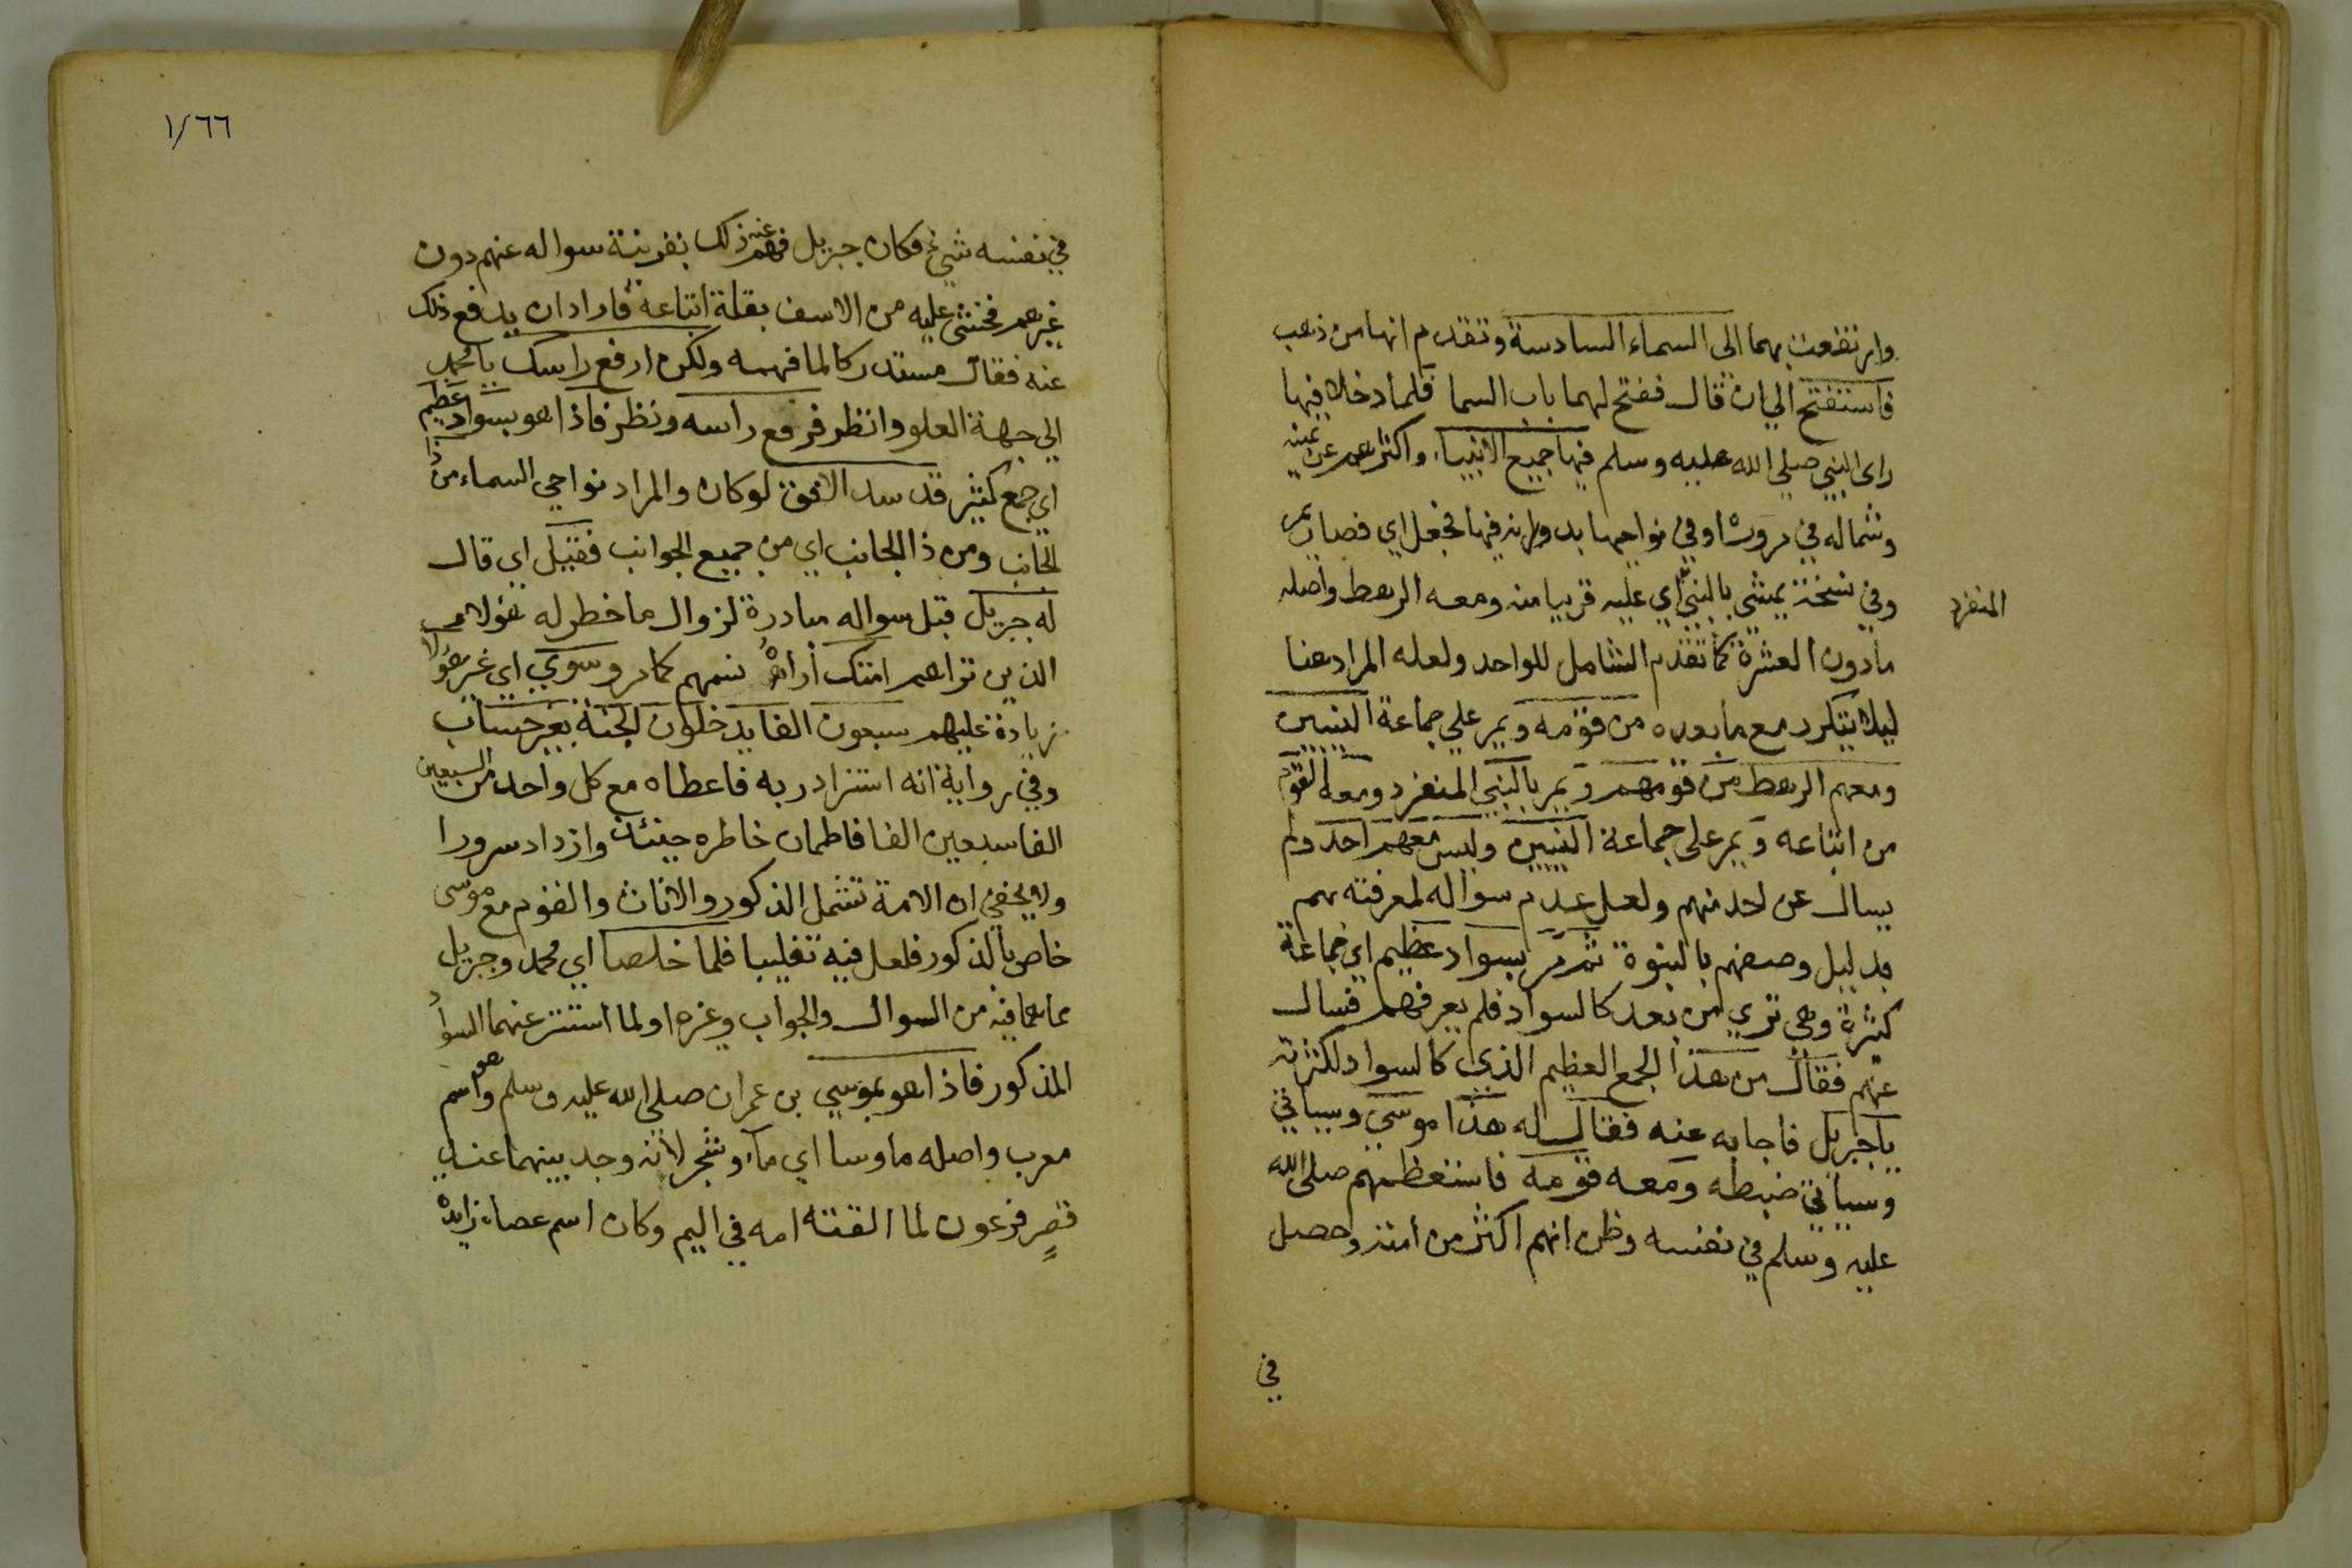 وارتفعت بهما الى السماء السادسة وتقدم انها من ذهب
فاستفتح الي ان قال ففتح لهما باب السما فلما دخلا فيها
راى النبي صلي الله عليه وسلم فيها جميع الانبياء واكثرهم عن يمينه
وشماله في مروره او في نواحيها بدورانه فيها فجعل اي فصار يمر
وفي نسخة يمشي بالنبي اي عليه قريبا منه ومعه الرهط واصله
المنفرد
مادون العشرة كما تقدم الشامل للواحد ولعله المراد هنا
ليلا يتكرر مع ما بعده من قومه ويمر علي جماعة النبيين
ومعهم الرهط من قومهم ويمر بالنبي المنفرد ومعه القوم
من اتباعه ويمر على جماعة النبيين وليس معهم احد ولم
يسال عن احد منهم ولعل عدم سواله لمعرفته بهم
بدليل وصفهم بالنبوة ثم مر بسواد عظيم اي جماعة
كثيرة وهي تري من بعد كالسواد فلم يعرفهم فسال
عنهم فقال من هذا الجمع العظيم الذي كالسواد لكثرته
ياجبريل فاجابه عنه فقال له هذا موسي وسياتي
وسياتي ضبطه ومعه قومه فاستعظمهم صلى الله
عليه وسلم في نفسه وظن انهم اكثر من امته وحصل
في
١/٦٦
في نفسه شيئ وكان جبريل فهم عنه ذلك بقرينة سواله عنهم دون
غيرهم فخشي عليه من الاسف بقلة اتباعه فاراد ان يدفع ذلك
عنه فقال مستدركا لما فهمه ولكن ارفع راسك يا محمد
الي جهة العلو وانظر فرفع راسه ونظر فاذا هو بسواد عظيم
اي جمع كثير قد سد الافق لو كان والمراد نواحي السماء من ذا
الجانب ومن ذا الجانب اي من جميع الجوانب فقيل اي قال
له جبريل قبل سواله مبادرة لزوال ما خطر له هولاء
الذين تراهم امتك أراه نسمهم كما مر وسوي اي غير هولا
زيادة عليهم سبعون الفا يدخلون الجنة بغير حساب
وفي رواية انه استزاد ربه فاعطاه مع كل واحد من السبعين
الفا سبعين الفا فاطمان خاطره حينئذ وازداد سرورا
ولا يخفي ان الامة تشمل الذكور والاناث والقوم مع موسى
خاص بالذكور فلعل فيه تغليبا فلما خلصا اي محمد وجبريل
عما هما فيه من السوال والجواب وغيره او لما استتر عنهما السواد
المذكور فاذا هو بموسي بن عمران صلي الله عليه وسلم وهو اسم
معرب واصله ماوسا اي ماء وشجر لانه وجد بينهما عند
قصر فرعون لما القته امه في اليم وكان اسم عصاه زايده